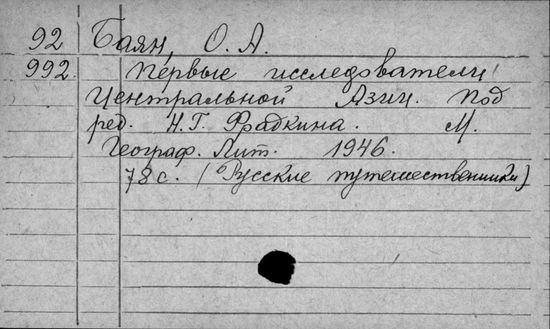 92 Баян, О. А.
992. Первые исследователи
Центральной Азии. Под
ред. Н.Г. Фрадкина. М.
Географ. Лит. 1946.
78 с. (Русские путешественники)